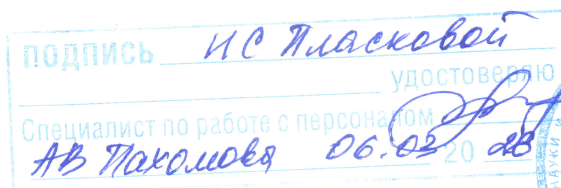 ПОДПИСЬ Н С Пласковой
УДОСТОВЕРЯЮ
Специалист по работе с персоналом
АВ Пахомова 06.03 20 23
НАУКИ И